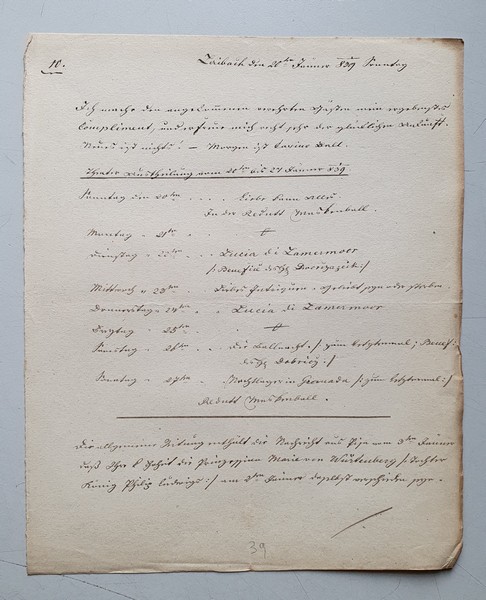 10.
Laibach den 20ten Jänner 839 Sonntag
Ich mache den angekommenen verehrten Gästen mein ergebenstes
Compliment, und erfreue mich recht sehr der glücklichen Ankunft.
Neues ist nichts! – Morgen ist Casino Ball.
Theater Austheilung vom 20ten bis 27 Jänner 839.
Sonntag den 20ten . . . . Liebe kann Alles.
In der Redutt Maskenball.
Montag " 21ten . . . #
Dienstag " 22ten . . . Lucia di Lamermoor
/: Benefiz des H:
Mittwoch " 23ten . . oder sterben.
Donnerstag " 24ten . . Lucia di Lamermoor
Freytag " 25ten . . #
Samstag " 26ten . . Die Ballnacht. /: zum letztenmal; Benef:
des H:
Sonntag " 27ten . . Nachtlager in Granada /: zum letztenmal :/
Redutt Maskenball.
Die allgemeine Zeitung enthält die Nachricht aus Pisa vom 3ten Jänner
daß Ihre k Hoheit die Prinzessin Marie von Würtenberg /: Tochter
König Philip Ludwigs :/ am 2ten Jänner daselbst verschieden seye.
39